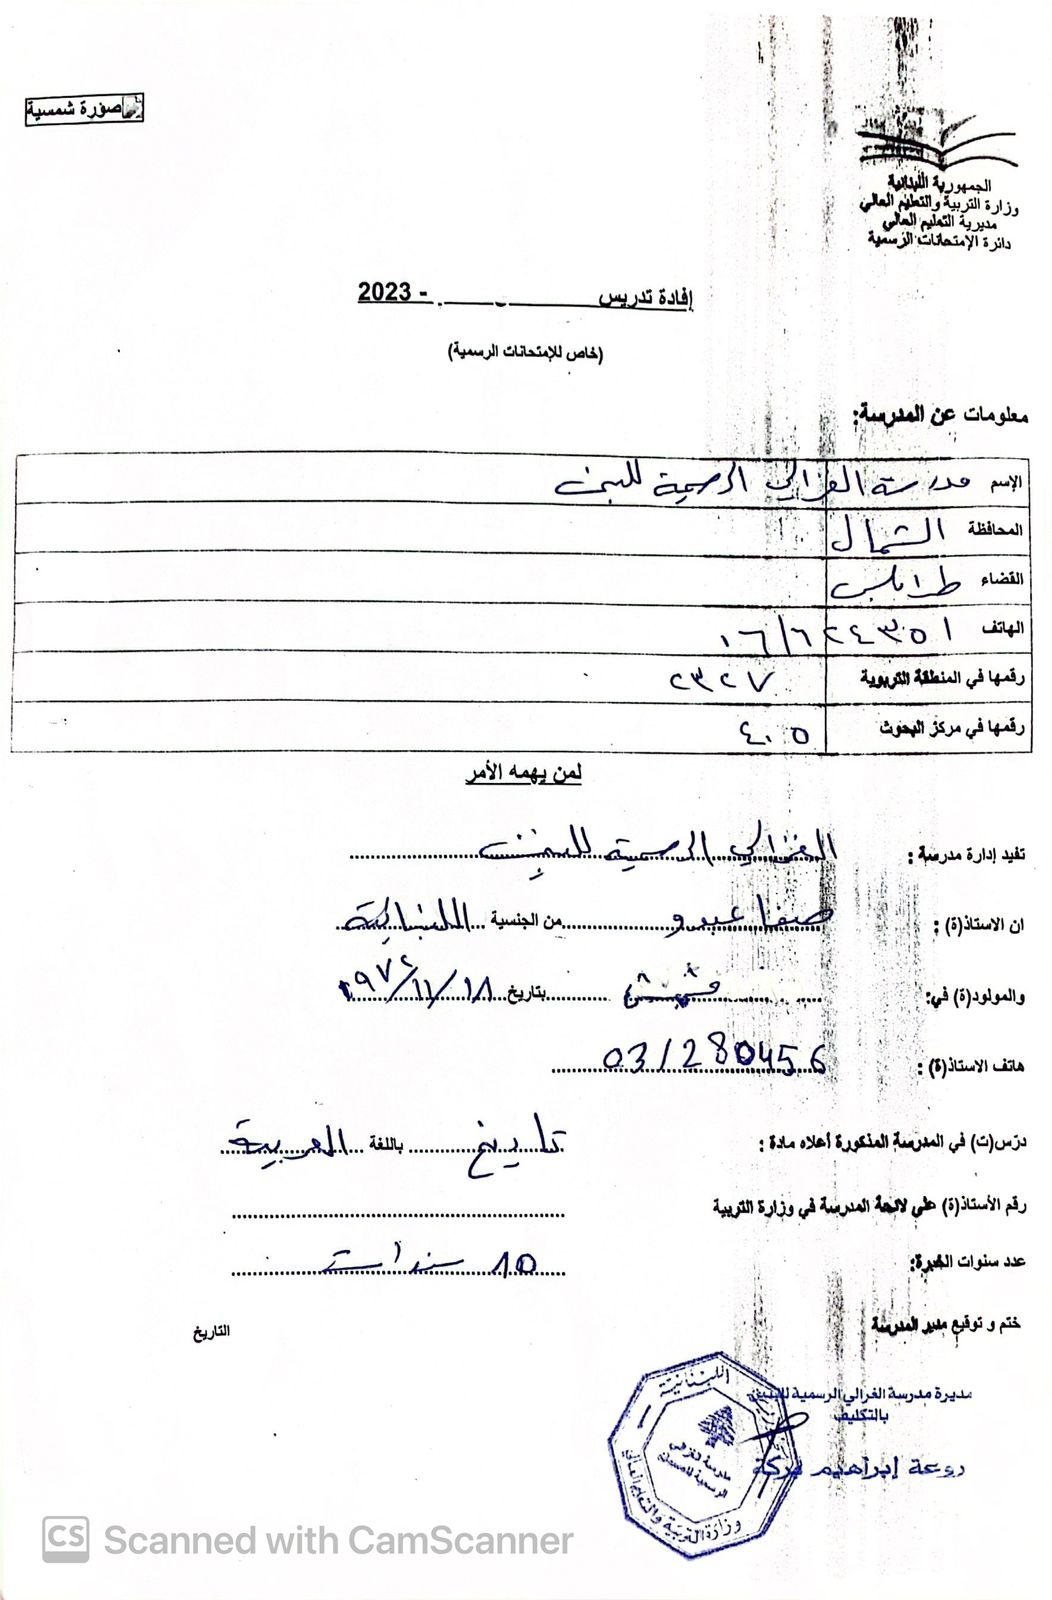 صورة شمسية
الجمهورية اللبنانية
وزارة التربية والتعليم العالي
مديرية التعليم العالي
دائرة الإمتحانات الرسمية
إفادة تدريس - 2023
(خاص للإمتحانات الرسمية)
معلومات عن المدرسة:
الإسم مدرسة الغزالي الرسمية للبنين
المحافظة الشمال
القضاء طرابلس
الهاتف ٠٦/٦٢٤٣٥١
رقمها في المنطقة التربوية ٢٣٢٧
رقمها في مركز البحوث ٤٠٥
لمن يهمه الأمر
تفيد إدارة مدرسة : الغزالي الرسمية للبنين
ان الاستاذ(ة) : صفا عبدو من الجنسية اللبنانية
والمولود(ة) في: بتاريخ ١٨/١١/١٩٧٢
هاتف الاستاذ(ة) : 03/280456
درّس(ت) في المدرسة المذكورة أعلاه مادة : تاريخ باللغة العربية
رقم الأستاذ(ة) على لائحة المدرسة في وزارة التربية
عدد سنوات الخبرة: 10 سنوات
ختم و توقيع مدير المدرسة
التاريخ
مديرة مدرسة الغزالي الرسمية للبنين
بالتكليف
روعة إبراهيم بركة
اللبنانية
مدرسة الغزالي
الرسمية للصبيان
وزارة التربية والتعليم العالي
CS Scanned with CamScanner